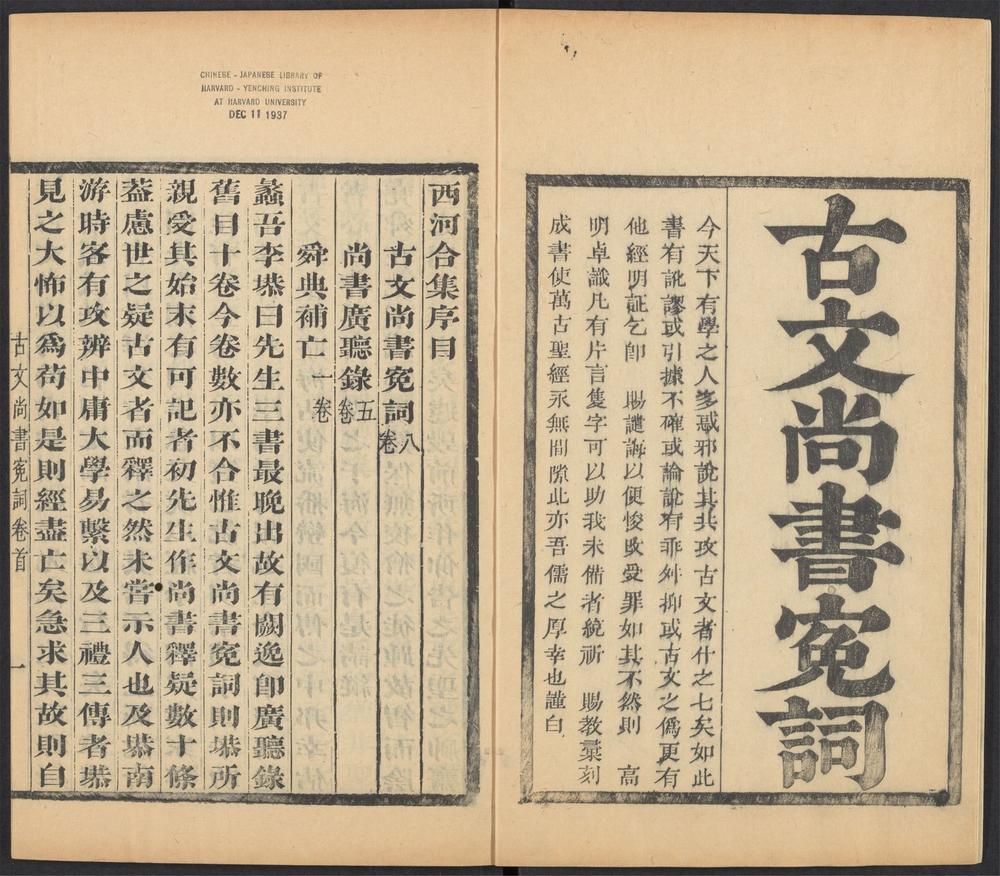 古文尚書寃詞
今天下有學之人多惑邪說其共攻古文者什之七矣如此
書有訛謬或引據不確或論說有乖舛抑或古文之僞更有
他經明証乞卽　賜譴誨以便悛改受罪如其不然則　高
明卓識凡有片言隻字可以助我未備者統祈　賜教彙刻
成書使萬古聖經永無間隙此亦吾儒之厚幸也謹白
CHINESE - JAPANESE LIBRARY OF
HARVARD - YENCHING INSTITUTE
AT HARVARD UNIVERSITY
DEC 11 1937
西河合集序目
古文尚書寃詞八卷
尚書廣聽錄五卷
舜典補亡一卷
蠡吾李塨曰先生三書最晚出故有闕逸卽廣聽錄
舊目十卷今卷數亦不合惟古文尚書寃詞則塨所
親受其始末有可記者初先生作尚書釋疑數十條
葢慮世之疑古文者而釋之然未嘗示人也及塨南
游時客有攻辨中庸大學易繫以及三禮三傳者塨
見之大怖以爲苟如是則經盡亡矣急求其故則自
古文尚書寃詞卷首
一